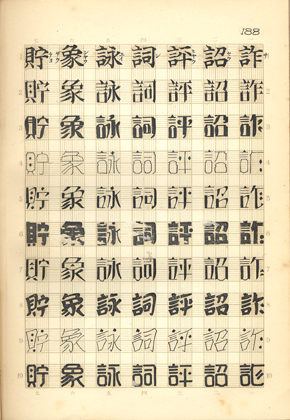 188
貯 象 詠 詞 評 詔 詐
貯 象 詠 詞 評 詔 詐
貯 象 詠 詞 評 詔 詐
貯 象 詠 詞 評 詔 詐
貯 象 詠 詞 評 詔 詐
貯 象 詠 詞 評 詔 詐
貯 象 詠 詞 評 詔 詐
貯 象 詠 詞 評 詔 詐
貯 象 詠 詞 評 詔 詐
貯 象 詠 詞 評 詔 詐